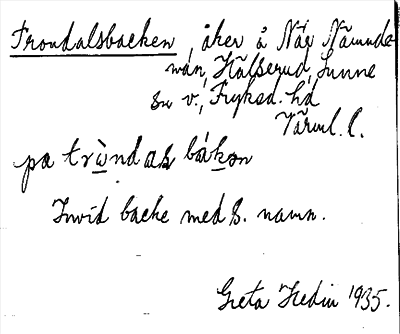 Frondalsbacken, åker å Näs Nämnde-
man, Hälserud, Sunne
sn v., Fryksd. hd
Värml. l.
pa tròndas bákən
Invid backe med s. namn.
Greta Hedin 1935.